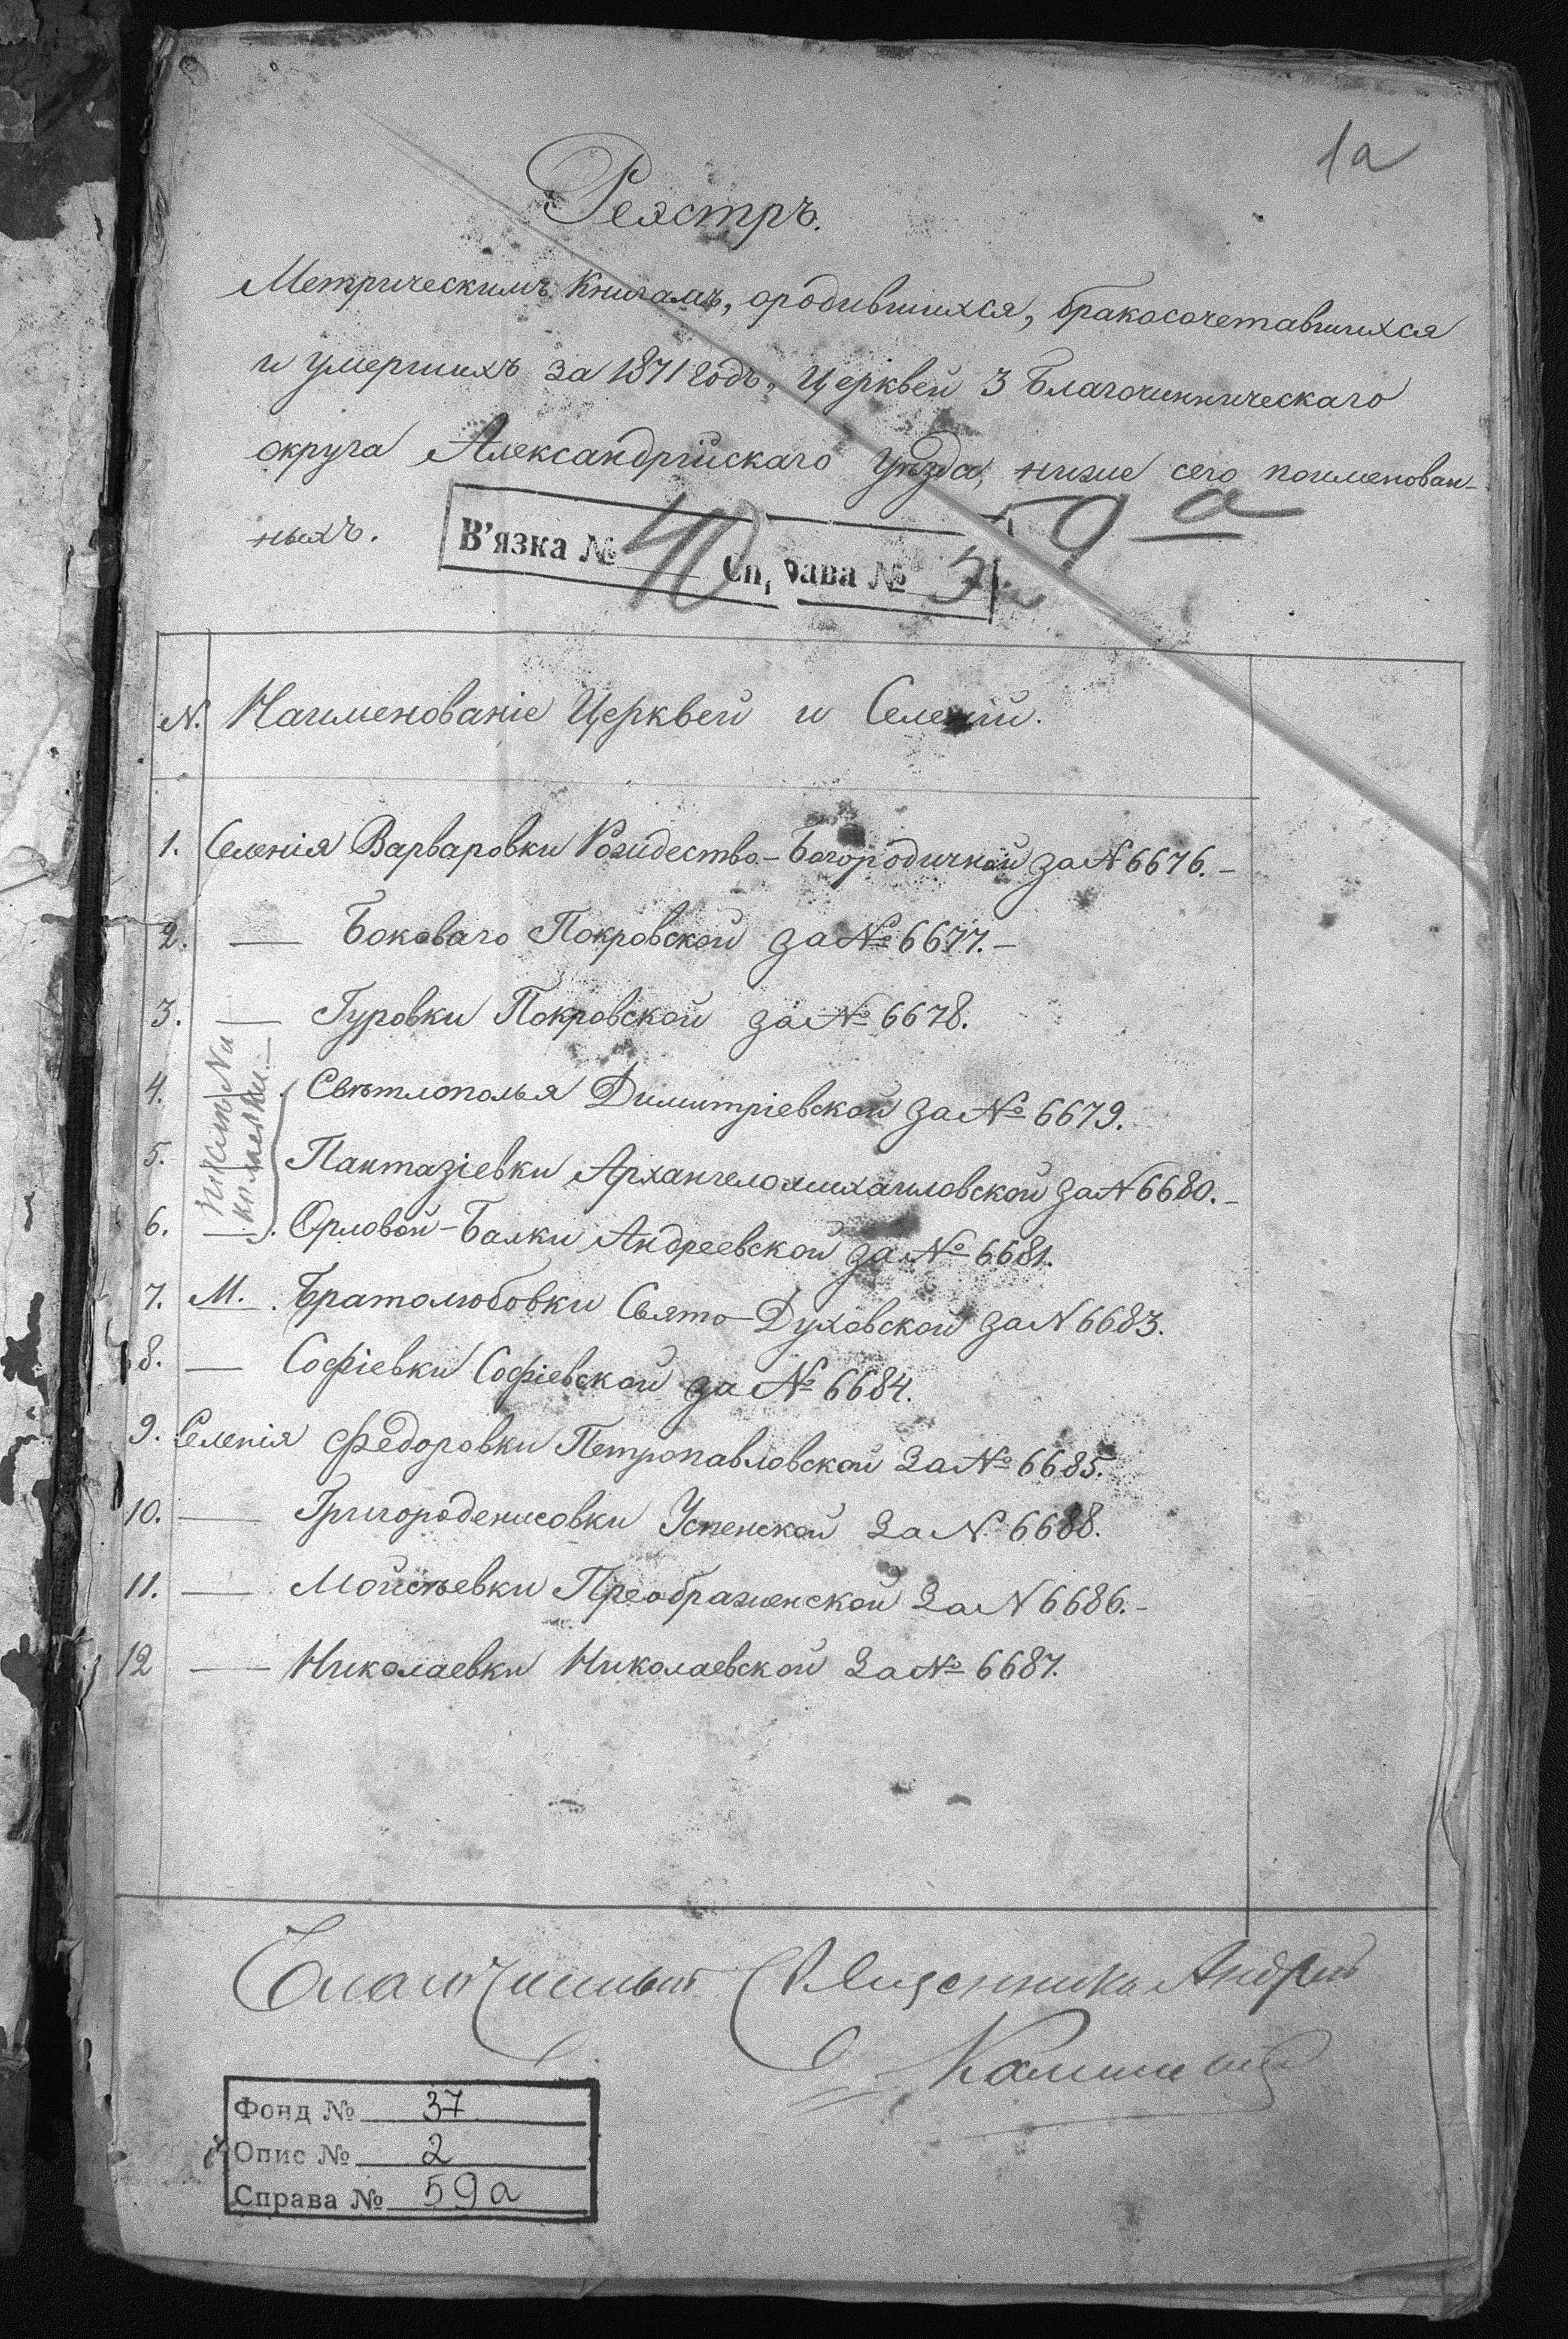 1а
Реэстръ.
Метрическимъ Книгамъ, ородившихся, бракосочетавшихся
и умершихъ за 1871 годъ, Церквей 3 Благочинническаго
округа Александрійскаго уѣзда, ниже сего поименован-
ныхъ.
59 а
В'язка № 40 Справа №
N. Наименованіе Церквей и Селеній.
1. Селенія Варваровки Рождество-Богородичной за N 6676.-
2. — Боковаго Покровской за № 6677.-
3. — Гуровки Покровской за № 6678.
4. — Свѣтлополья Димитріевской за № 6679.
5. — Пантазіевки Архангеломихаиловской за N 6680.-
6. — Орловой-Балки Андреевской за № 6681.
7. М. Братолюбовки Свято-Духовской за N 6683.
8. — Софіевки Софіевской за № 6684.
9. Селенія Федоровки Петропавловской за № 6685.
10. — Григороденисовки Успенской за N 6688.
11. — Мойсѣевки Преображенской за N 6686.-
12 — Николаевки Николаевской за № 6687.
Благочинный Священникъ Андрей
Фонд № 37
Опис № 2
Справа № 59а